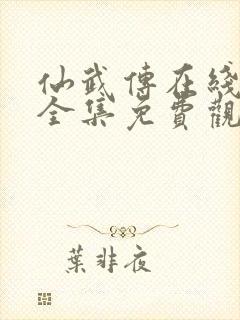 仙武傳在綫
全集免費觀
葉非夜